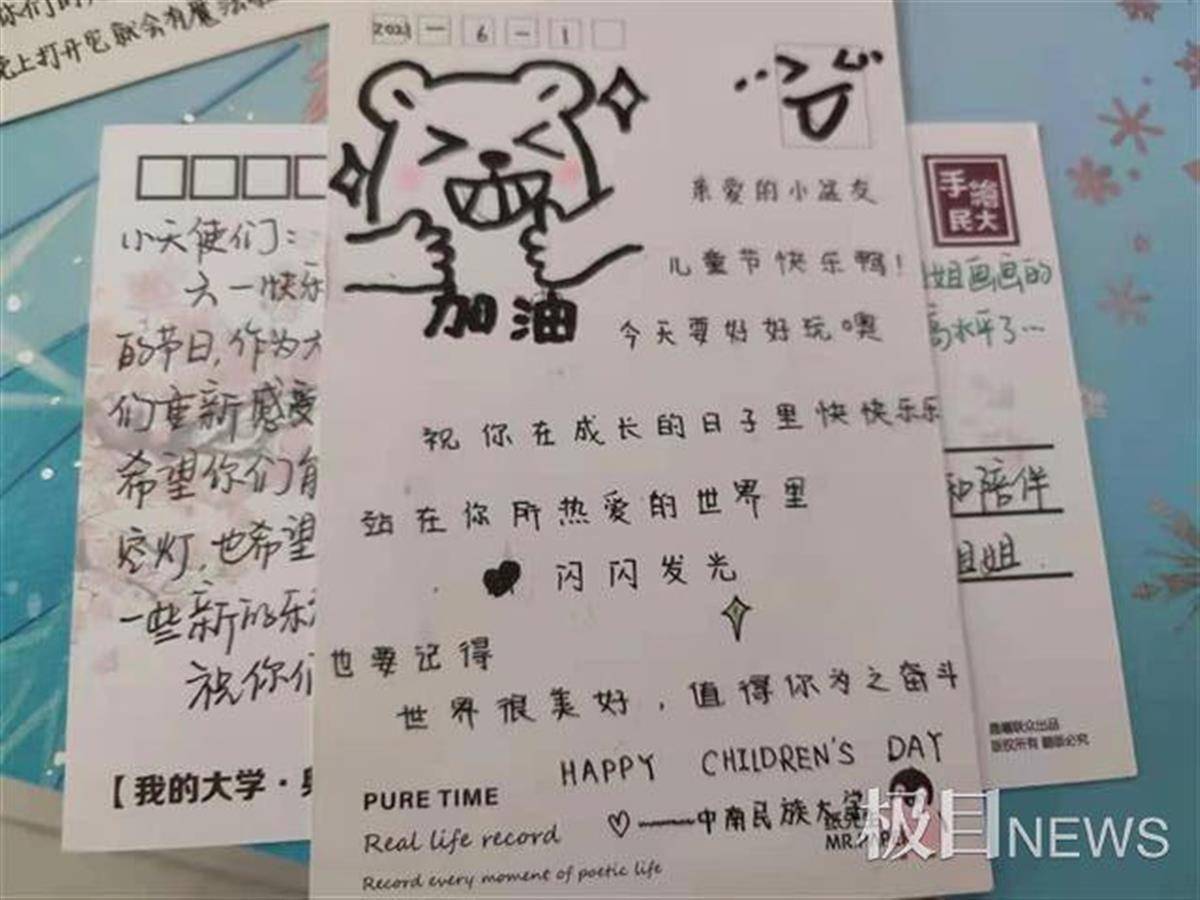 你们的
晚上打开它就会有魔法
2021-6-1
加油
亲爱的小盆友
儿童节快乐鸭!
今天要好好玩噢
祝你在成长的日子里快快乐乐
站在你所热爱的世界里
闪闪发光
也要记得
世界很美好,值得你为之奋斗
HAPPY CHILDREN'S DAY
♡——中南民族大学
PURE TIME
Real life record
Record every moment of poetic life
MR.
小天使们:
六一快乐
的节日,作为大
们重新感受
希望你们有
灯,也希望
一些新的乐
祝你们
【我的大学·
手绘
民大
姐画画的
高水平了...
和陪伴
姐姐.
联众出品
版权所有 翻版必究
极目NEWS